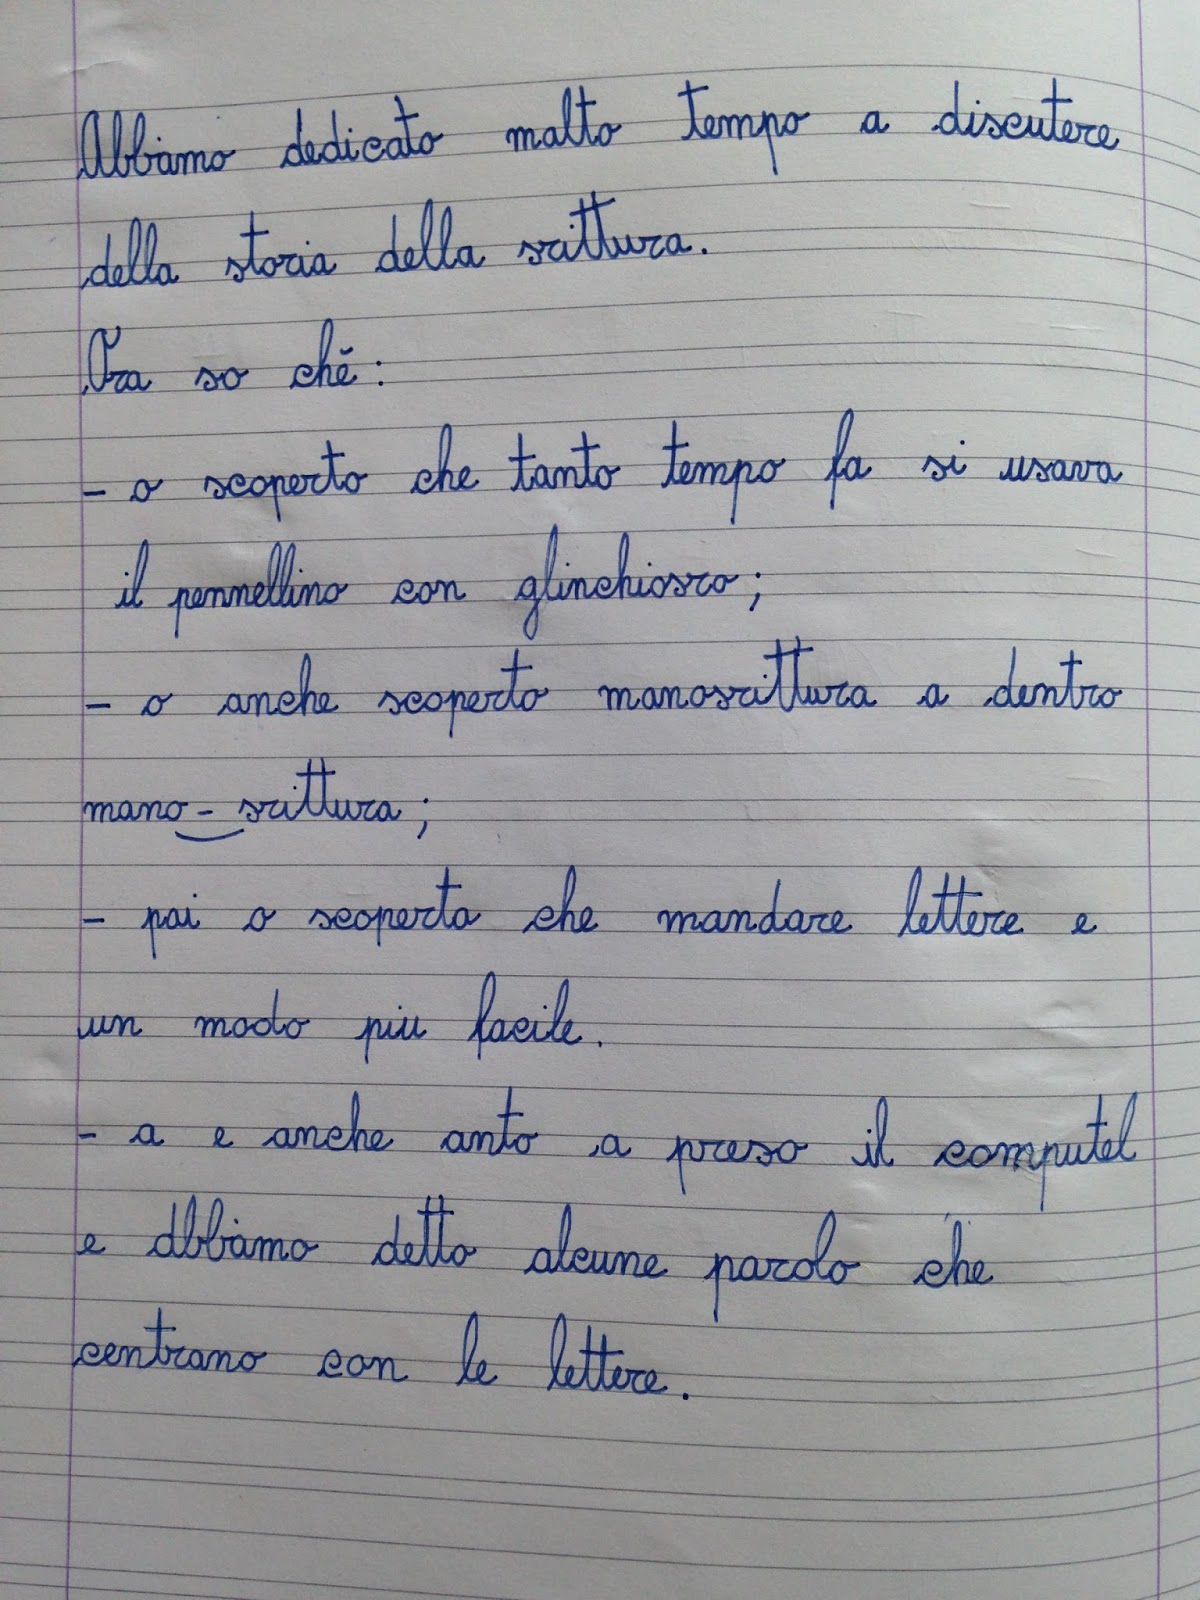 Abbiamo dedicato malto tempo a discutere
della storia della scrittura.
Ora so chě:
- o scoperto che tanto tempo fa si usava
il pennellino con glinchiosro;
- o anche scoperto manoscrittura a dentro
mano - scrittura;
- pai o scoperta che mandare lettere e
un modo piu facile.
- a e anche anto a preso il computel
e abbiamo detto alcune parolo che
centrano con le lettere.